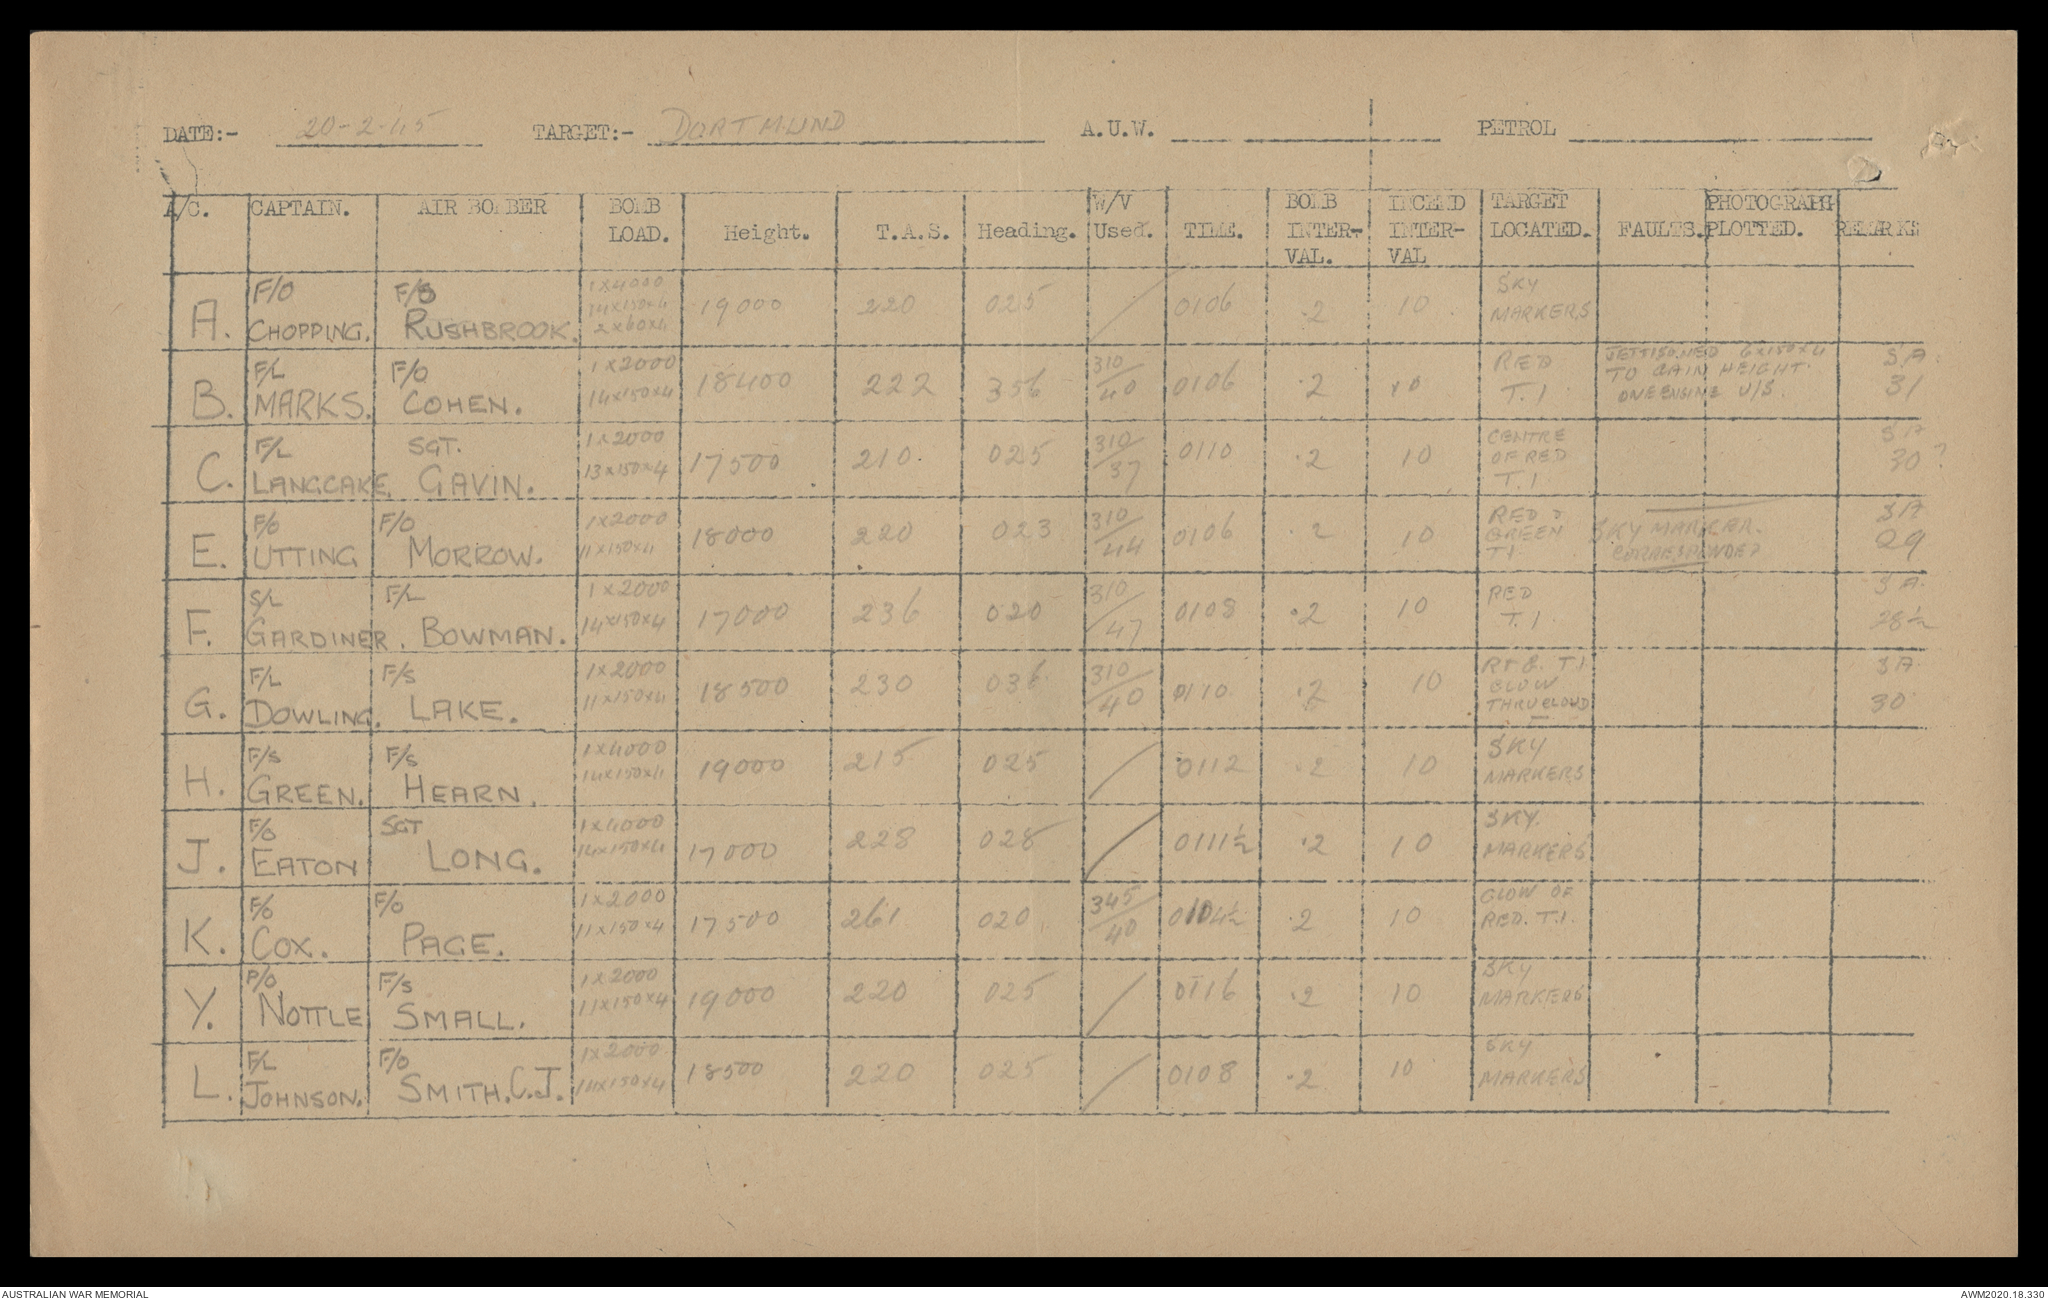 DATE:- 20-2-45 TARGET:- DORTMUND A.U.W. PETROL
A/C. CAPTAIN. AIR BOMBER BOMB LOAD. Height. T.A.S. Heading. W/V Used. TIME. BOMB INTER-VAL. INCEND INTER-VAL TARGET LOCATED. FAULTS. PHOTOGRAPH PLOTTED. REMARKS
A. F/O CHOPPING. F/S RUSHBROOK. 1x4000 14x150x4 2x60x4 19000 220 025 / 0106 .2 10 SKY MARKERS
B. F/L MARKS. F/O COHEN. 1x2000 14x150x4 18400 222 356 310/40 0106 .2 10 RED T.I JETTISONED 6x150x4 TO GAIN HEIGHT. ONE ENGINE U/S. S.A. 31
C. F/L LANGCAKE. SGT. GAVIN. 1x2000 13x150x4 17500 210 025 310/37 0110 .2 10 CENTRE OF RED T.I SA 30?
E. F/O UTTING F/O MORROW. 1x2000 11x150x4 18000 220 023 310/44 0106 .2 10 RED & GREEN TI SKY MARKER. CORRESPONDED SA 29
F. S/L GARDINER. F/L BOWMAN. 1x2000 14x150x4 17000 236 020 310/47 0108 .2 10 RED T.I SA. 28½
G. F/L DOWLING. F/S LAKE. 1x2000 11x150x4 18500 230 036 310/40 0110 .2 10 R+G. T.I GLOW THRU CLOUD SA. 30
H. F/S GREEN. F/S HEARN. 1x4000 14x150x4 19000 215 025 / 0112 .2 10 SKY MARKERS
J. F/O EATON SGT LONG. 1x4000 14x150x4 17000 228 028 / 0111½ .2 10 SKY. MARKERS
K. F/O COX. F/O PAGE. 1x2000 11x150x4 17500 261 020 345/40 0104½ .2 10 GLOW OF RED. T.I.
Y. P/O NOTTLE F/S SMALL. 1x2000 11x150x4 19000 220 025 / 0116 .2 10 SKY MARKERS
L. F/L JOHNSON. F/O SMITH.C.J. 1x2000 11x150x4 18500 220 025 / 0108 .2 10 SKY MARKERS
AUSTRALIAN WAR MEMORIAL AWM2020.18.330